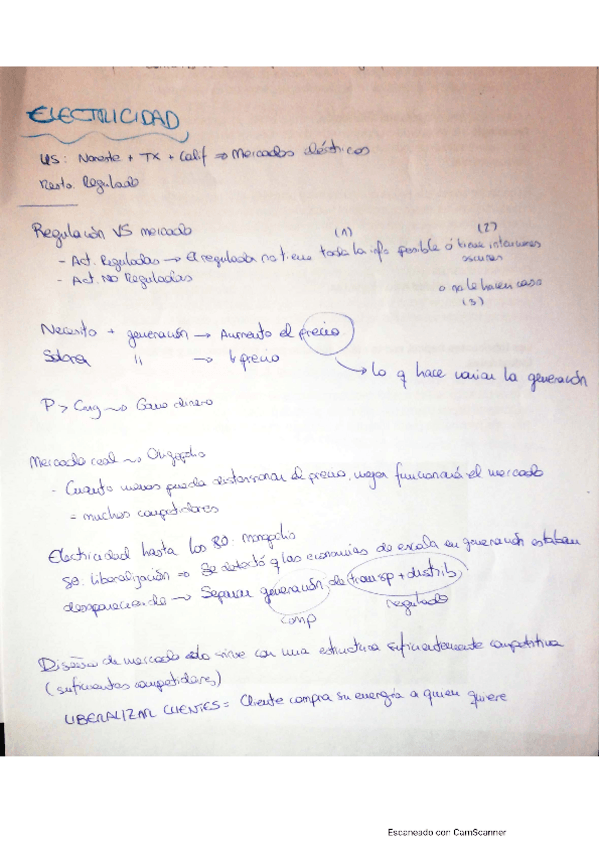 ELECTRICIDAD
US: Noreste + TX + Calif ⇒ Mercados eléctricos
Resto Regulado
Regulación VS mercado
(1) (2)
- Act. Reguladas → El regulador no tiene toda la info posible ó tiene intenciones oscuras
- Act. NO Reguladas
o no le hacen caso
(3)
Necesito + generación → Aumento el precio
Sobra " → ↓ precio
Lo q hace variar la generación
P > Cmg → Gano dinero
Mercado real → Oligopolio
- Cuanto menos pueda distorsionar el precio, mejor funcionará el mercado
= muchos competidores
Electricidad hasta los 80: monopolio
80: liberalización ⇒ Se detectó q las economías de escala en generación estaban
desapareciendo → Separar generación de transp + distrib
comp regulado
Diseño de mercado sólo sirve con una estructura suficientemente competitiva
(suficientes competidores)
LIBERALIZAR CLIENTES = Cliente compra su energía a quien quiere
Escaneado con CamScanner